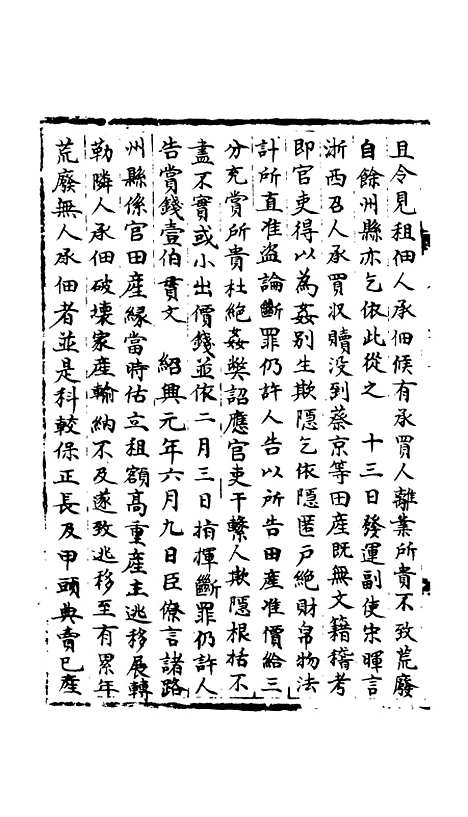 且令見租佃人承佃候有承買人離業所貴不致荒廢
自餘州縣亦乞依此從之　十三日發運副使宋暉言
浙西召人承買収贖没到蔡京等田産既無文籍稽考
即官吏得以為姦别生欺隱乞依隱匿戸絶財帛物法
計所直准盗論斷罪仍許人告以所告田産准價給三
分充賞所貴杜絶姦弊詔應官吏干繫人欺隱根括不
盡不實或小出價錢並依二月三日指揮斷罪仍許人
告賞錢壹伯貫文　紹興元年六月九日臣僚言諸路
州縣係官田産緣當時估立租額髙重産主逃移展轉
勒隣人承佃破壊家産輸納不及遂致逃移至有累年
荒廢無人承佃者並是科較保正長及甲頭典賣已産